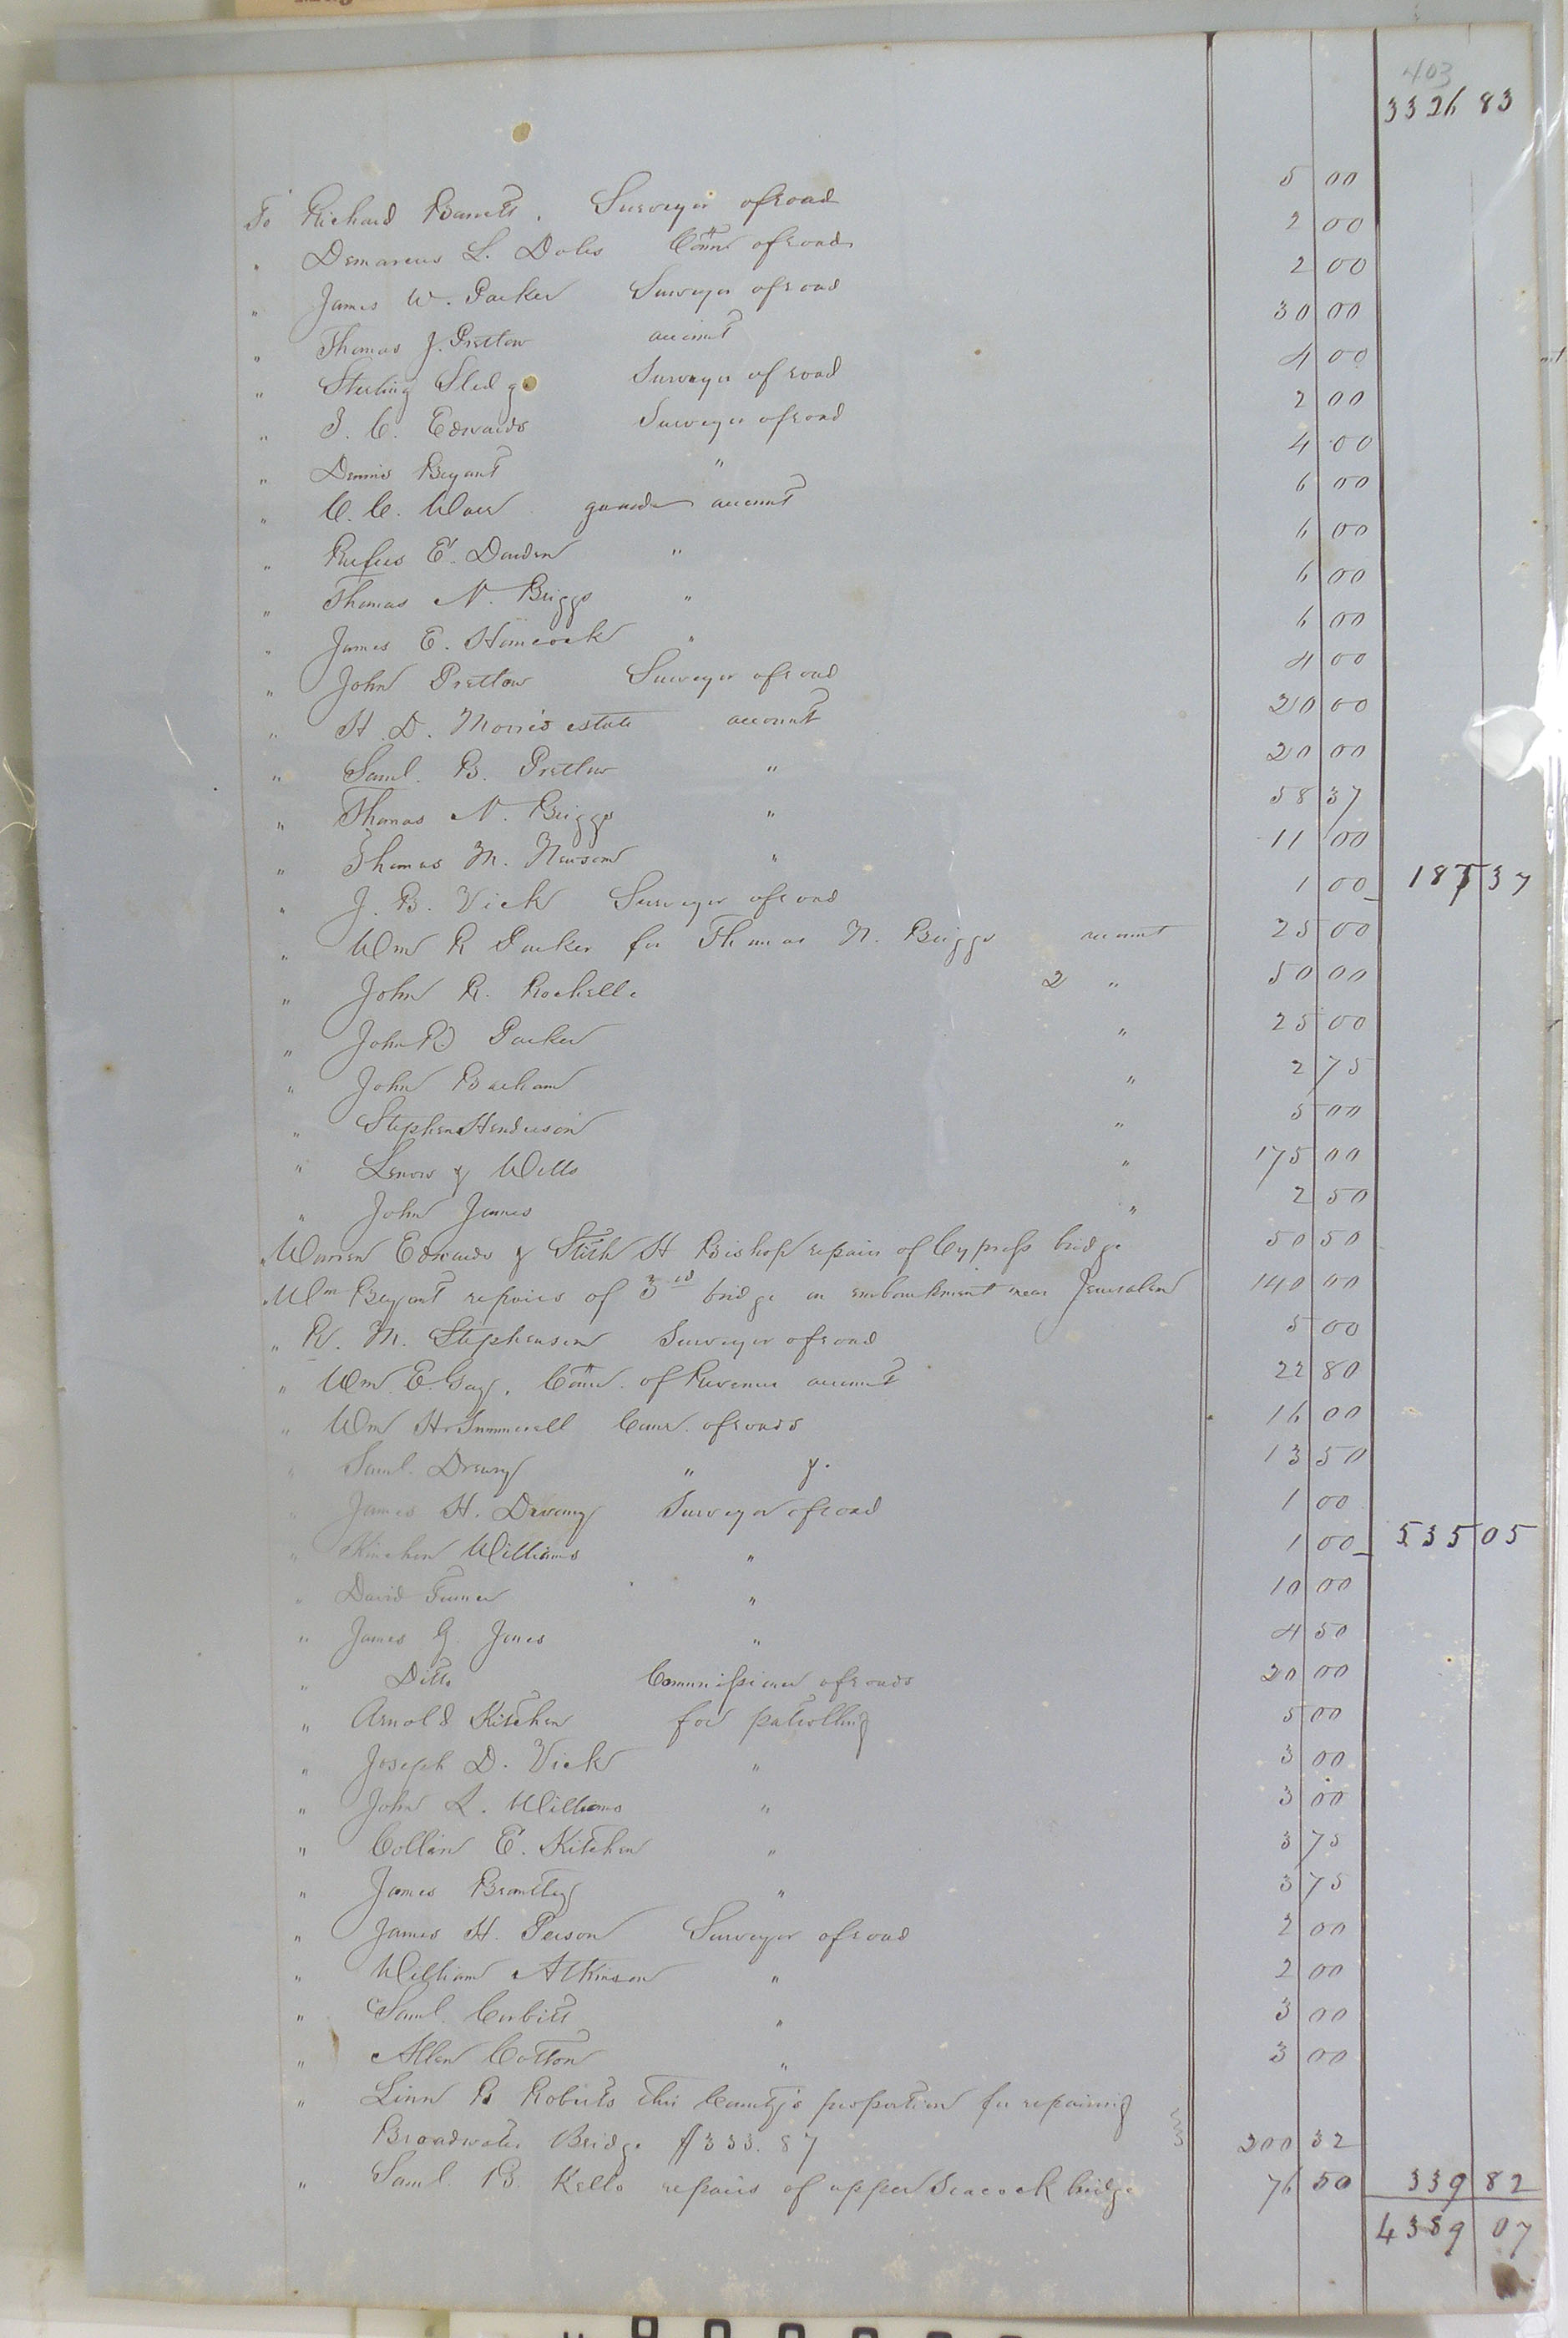 403
3326 83
To Richard Barrett, Surveyor of road 5 00
" Demarcus L. Doles Comr of roads 2 00
" James W. Parker Surveyor of road 2 00
" Thomas J. Pretlow account 30 00
" Sterling Sledge Surveyor of road 4 00
" J. C. Edwards Surveyor of road 2 00
" Dennis Bryant " 4 00
" C. C. Ware guard account 6 00
" Rufus E. Darden " 6 00
" Thomas N. Briggs " 6 00
" James E. Hancock " 6 00
" John Pretlow Surveyor of road 4 00
" H. D. Morris estate account 20 00
" Saml. B. Pretlow " 20 00
" Thomas N. Briggs " 58 37
" Thomas M. Newsom " 11 00
" J. B. Vick Surveyor of road 1 00 187 37
" Wm R Parker for Thomas N. Briggs account 25 00
" John R. Rochelle 2 " 50 00
" John R Parker " 25 00
" John Barham " 2 75
" Stephen Henderson " 5 00
" Lenow & Wills " 175 00
" John James " 2 50
" Warren Edwards & Stith H Bishop repairs of Cypress bridge 50 50
" Wm Bryant repairs of 3rd bridge on embankment near Jerusalem 140 00
" R. M. Stephenson Surveyor of road 5 00
" Wm. E. Gay, Comr. of Revenue account 22 80
" Wm H. Summerell Comr. of roads 16 00
" Saml. Drewry " y. 13 50
" James H. Drewry Surveyor of road 1 00
" Kinchen Williams " 1 00 535 05
" David Turner " 10 00
" James G. Jones " 4 50
" Ditto Commissioner of roads 20 00
" Arnold Kitchen for patrolling 5 00
" Joseph D. Vick " 3 00
" John L. Williams " 3 00
" Collin E. Kitchen " 3 75
" James Brantley " 3 75
" James H. Person Surveyor of road 2 00
" William Atkinson " 2 00
" Saml. Corbitt " 3 00
" Allen Cotton " 3 00
" Linn B Roberts this County's proportion for repairing
Broadwater Bridge $333.87 200 32
" Saml B. Kello repairs of upper Seacock bridge 76 50 339 82
4389 07